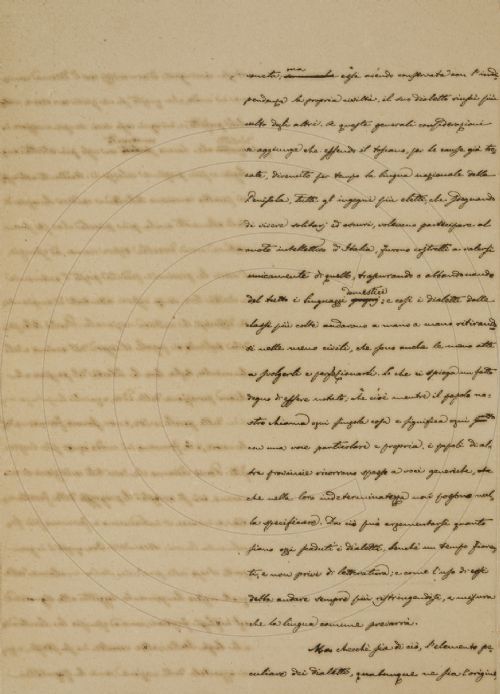 veneti, ma essi avendo conservata con l'indi-
pendenza la propria civiltà, il suo dialetto riuscì più
culto degli altri. A queste generali considerazioni
si aggiunge che essendo il toscano, per le cause già toc-
cate, divenuto per tempo la lingua nazionale della
Penisola, tutti gl'ingegni più eletti, che sdegnando
di vivere solitarj ed oscuri, volevano partecipare al
moto intellettivo d'Italia, furono costretti a valersi
unicamente di quello, trascurando e abbandonando
del tutto i linguaggi domestici; e così i dialetti dalle
classi più colte andavano a mano a mano ritirando-
si nelle meno civili, che sono anche le meno atte
a svolgerli e perfezionarli. Lo che ci spiega un fatto
degno di essere notato, che cioè mentre il popolo no-
stro chiama ogni singola cosa e significa ogni
con una voce particolare e propria, i popoli di al-
tre provincie ricorrano spesso a voci generiche,
che nella loro indeterminatezza non possono nul-
la specificare. Da ciò può argomentarsi quanto
siano oggi scaduti i dialetti, benchè un tempo fioren-
ti, e non privi di letteratura; e come l'uso di essi
debba andare sempre più ristringendosi, a misura
che la lingua comune prevarrà.
Ma checchè sia di ciò, l'elemento pe-
culiare dei dialetti, qualunque ne sia l'origine,